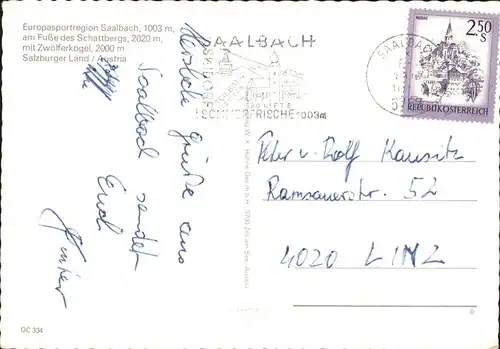 Europasportregion Saalbach, 1003 m,
am Fuße des Schattbergs, 2020 m,
mit Zwölferkogel, 2000 m
Salzburger Land / Austria
SAALBACH
SOMMERFRISCHE 1003m
SAALBACH
2.50
S
REPUBLIK ÖSTERREICH
Herzliche Grüße aus
Saalbach sendet
Euch
Günter
Peter u. Rolf
Ramsauerstr. 52
4020 LINZ
OC 334